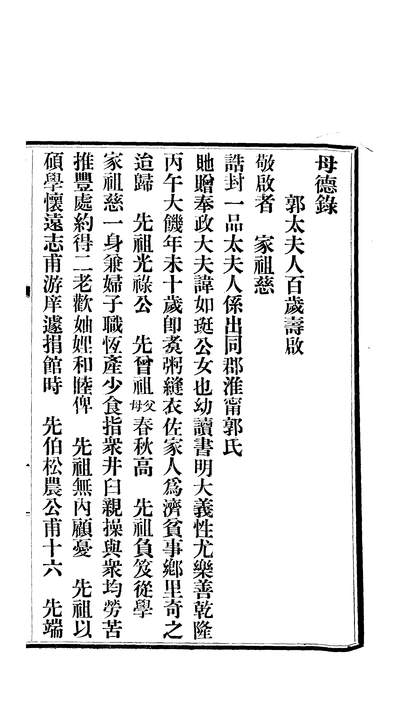 母德錄
郭太夫人百歲壽啟
敬啟者　家祖慈
誥封一品太夫人係出同郡淮甯郭氏
貤贈奉政大夫諱如珽公女也幼讀書明大義性尤樂善乾隆
丙午大饑年未十歲卽煑粥縫衣佐家人爲濟貧事鄉里奇之
迨歸　先祖光祿公　先曾祖父母春秋高　先祖負笈從學
家祖慈一身兼婦子職恆產少食指衆井臼親操與衆均勞苦
推豐處約得二老歡妯娌和睦俾　先祖無內顧憂　先祖以
碩學懷遠志甫游庠遽捐館時　先伯松農公甫十六　先端